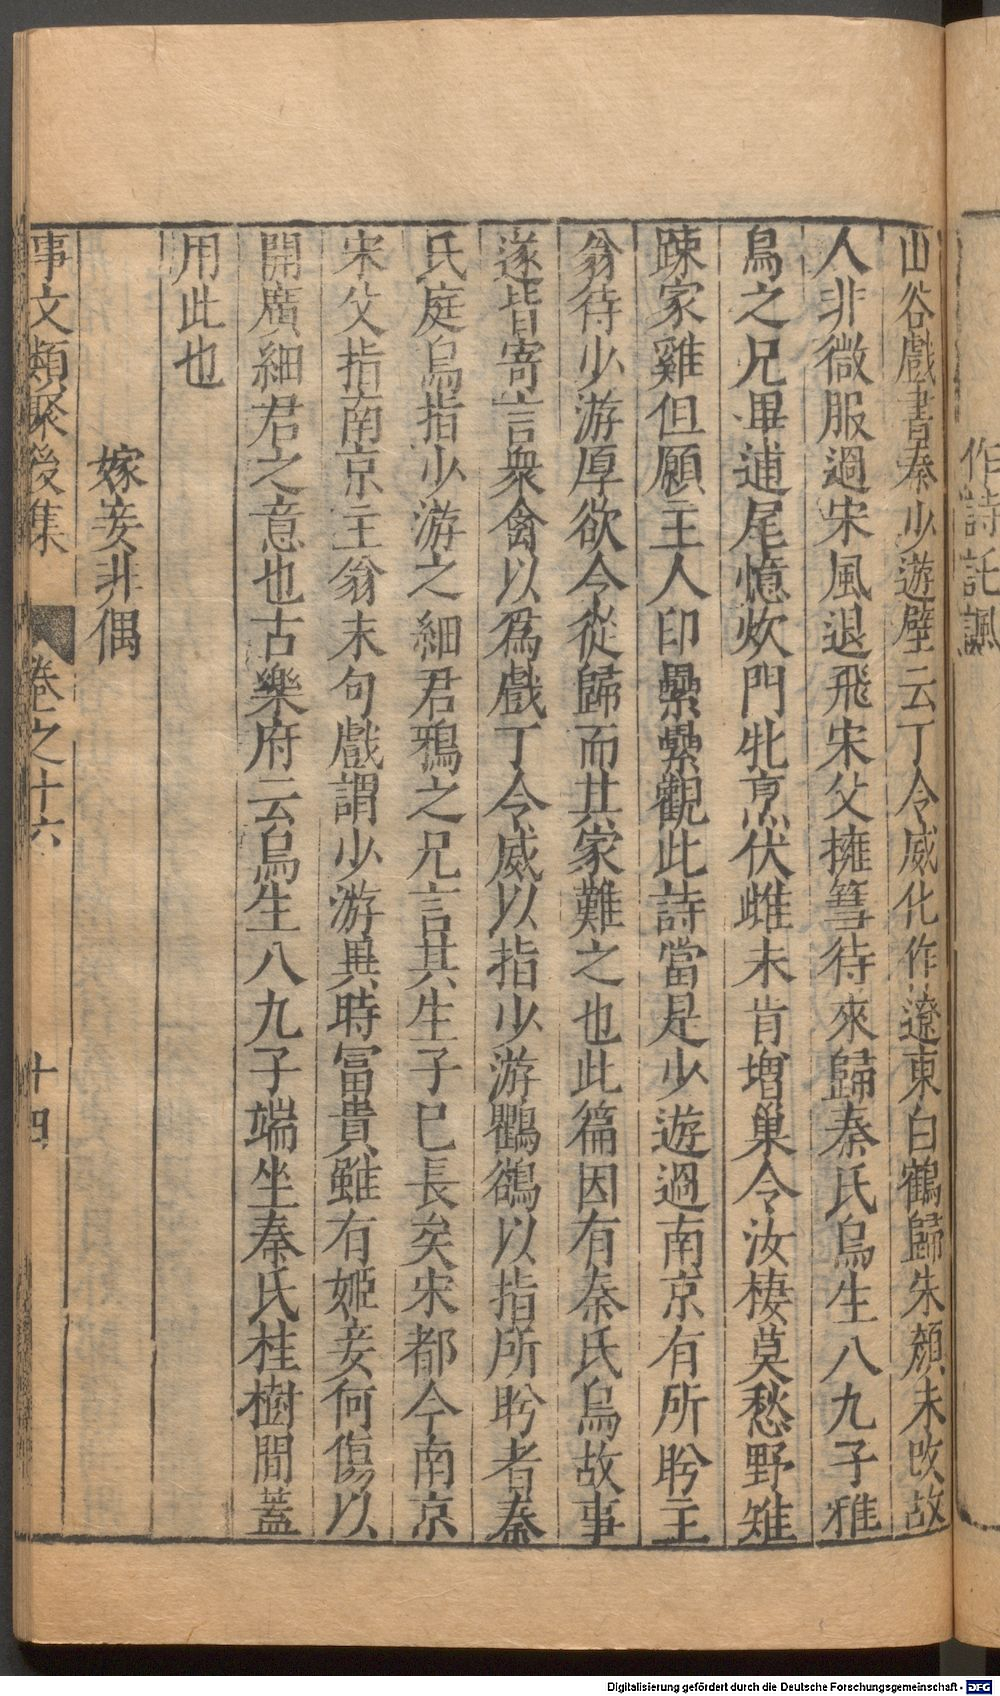 作詩託諷
山谷戲書秦少遊壁云丁令威化作遼東白鶴歸朱顏未改故
人非微服過宋風退飛宋父擁篲待來歸秦氏烏生八九子雅
烏之兄畢逋尾憶炊門牝烹伏雌未肯增巢令汝棲莫愁野雉
踈家雞但願主人印纍纍觀此詩當是少遊過南京有所盻主
翁待少游厚欲令從歸而其家難之也此篇因有秦氏烏故事
遂皆寄言衆禽以爲戲丁令威以指少游鸜鵒以指所盻者秦
氏庭烏指少游之細君鴉之兄言其生子已長矣宋都今南京
宋父指南京主翁末句戲謂少游異時富貴雖有姬妾何傷以
開廣細君之意也古樂府云烏生八九子端坐秦氏桂樹間蓋
用此也
嫁妾非偶
事文類聚後集 卷之十六 十四
Digitalisierung gefördert durch die Deutsche Forschungsgemeinschaft - DFG